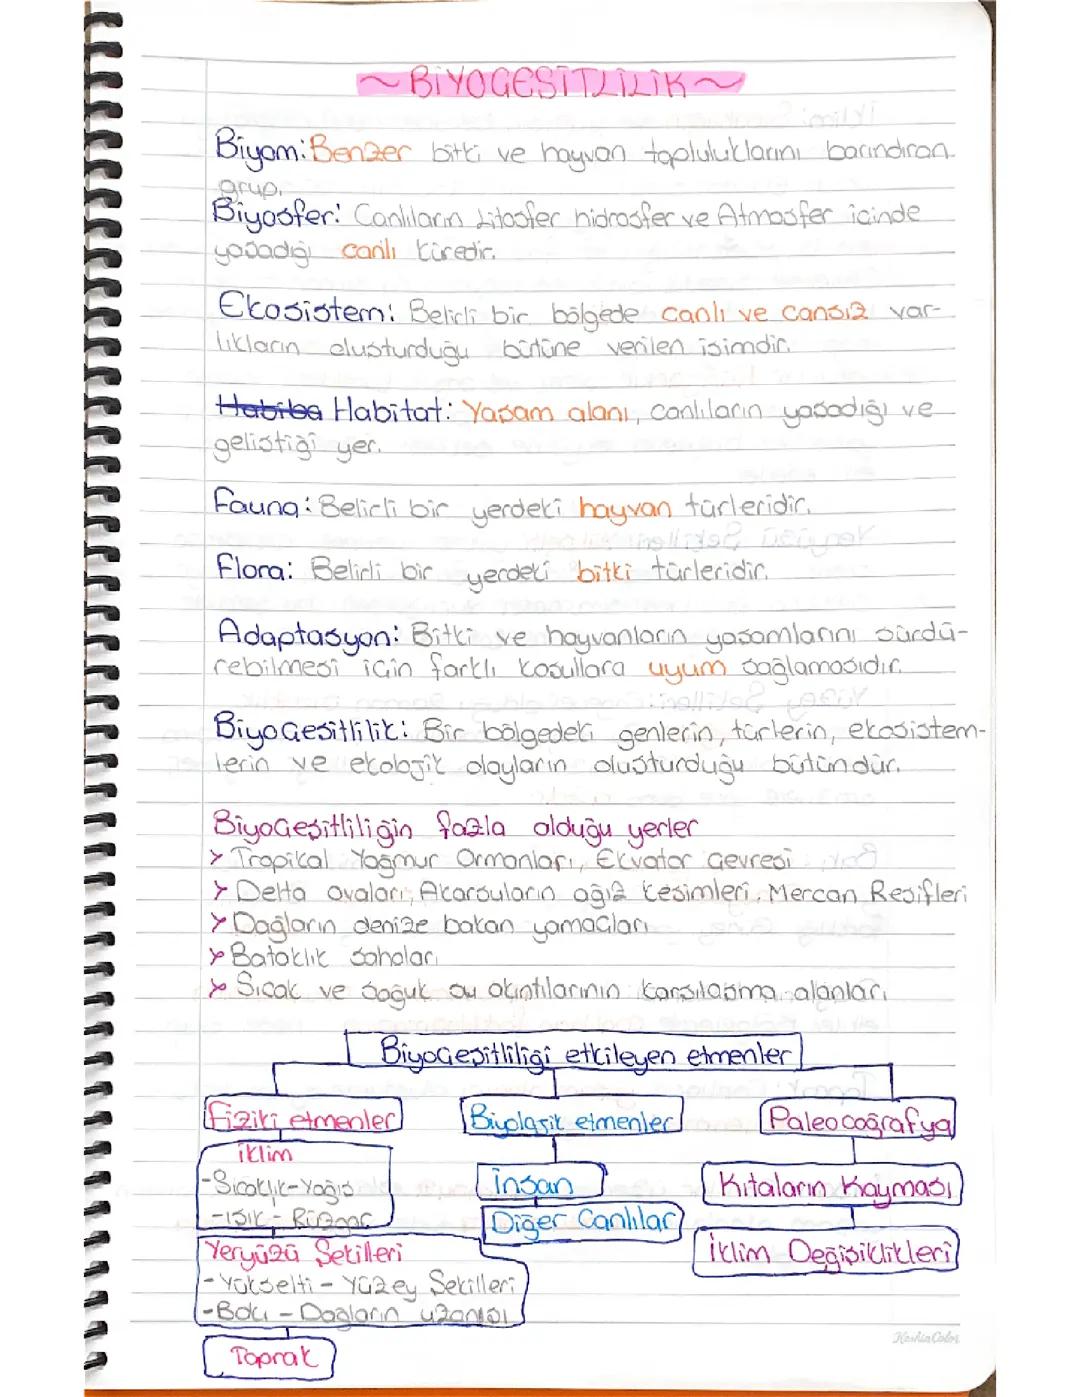 ~BİYOÇEŞİTLİLİK~
Biyom: Benzer bitki ve hayvan topluluklarını barındıran
grup.
Biyosfer: Canlıların Litosfer hidrosfer ve Atmosfer içinde
yaşadığı canlı küredir.
Ekosistem: Belirli bir bölgede canlı ve cansız var-
lıkların oluşturduğu bütüne verilen isimdir.
Habiba Habitat: Yaşam alanı, canlıların yaşadığı ve
geliştiği yer.
Fauna: Belirli bir yerdeki hayvan türleridir.
Flora: Belirli bir yerdeki bitki türleridir.
Adaptasyon: Bitki ve hayvanların yaşamlarını sürdü-
rebilmesi için farklı koşullara uyum sağlamasıdır.
Biyoçeşitlilik: Bir bölgedeki genlerin, türlerin, ekosistem-
lerin ve ekolojik olayların oluşturduğu bütündür.
Biyoçeşitliliğin fazla olduğu yerler
> Tropikal Yağmur Ormanları, Ekvator Çevresi
> Delta ovaları, Akarsuların ağız kesimleri, Mercan Resifleri
> Dağların denize bakan yamaçları
> Bataklık sahaları
> Sıcak ve soğuk su akıntılarının karşılaşma alanları
Biyoçeşitliliği etkileyen etmenler
Fiziki etmenler Biyolojik etmenler Paleocoğrafya
İklim
-Sıcaklık-Yağış
-Işık - Rüzgar
İnsan
Diğer Canlılar
Kıtaların Kayması
İklim Değişiklikleri
Yeryüzü Şekilleri
-Yükselti - Yüzey Şekilleri
-Bakı - Dağların uzanışı
Toprak
KashiaColor